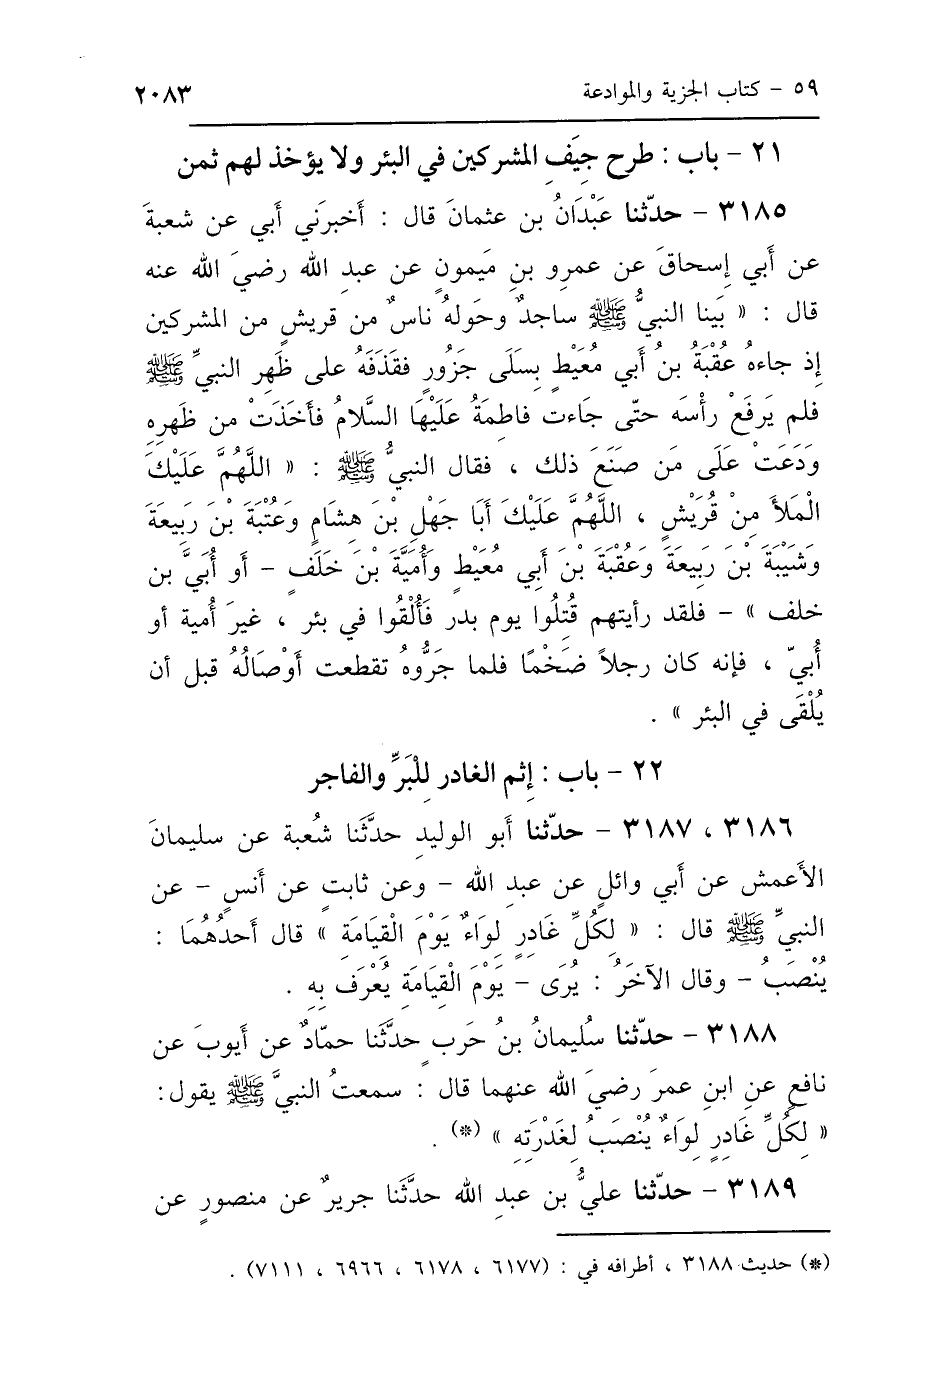 ٥٩ - كتاب الجزية والموادعة ٢٠٨٣
٢١ - باب : طرح جِيَفِ المشركين في البئر ولا يؤخذ لهم ثمن
٣١٨٥ - حدّثنا عَبْدَانُ بن عثمانَ قال : أخبرَني أبي عن شعبةَ
عن أبي إسحاقَ عن عمرو بنِ مَيمونٍ عن عبدِ الله رضيَ الله عنه
قال : « بَينا النبيُّ ﷺ ساجدٌ وحَولهُ ناسٌ من قريشٍ من المشركين
إذ جاءهُ عُقْبَةُ بنُ أبي مُعَيْطٍ بِسَلَى جَزُورٍ فقَذَفَهُ على ظَهرِ النبيِّ ﷺ
فلم يَرفَعْ رأْسَه حتّى جَاءت فاطمَةُ عَلَيْهَا السَّلامُ فأخَذَتْ من ظَهرِهِ
ودَعَتْ عَلَى مَن صنَعَ ذلك ، فقال النبيُّ ﷺ : « اللَّهُمَّ عَلَيْكَ
الْمَلأَ مِنْ قُرَيْشٍ ، اللَّهُمَّ عَلَيْكَ أبَا جَهْلِ بْنَ هِشَامٍ وَعُتْبَةَ بْنَ رَبِيعَةَ
وَشَيْبَةَ بْنَ رَبِيعَةَ وَعُقْبَةَ بْنَ أبي مُعَيْطٍ وأُمَيَّةَ بْنَ خَلَفٍ - أو أُبَيَّ بن
خلف » - فلقد رأيتهم قُتِلُوا يوم بدر فَأُلْقُوا في بئر ، غيرَ أُمية أو
أُبيّ ، فإنه كان رجلاً ضَخْمًا فلما جَرُّوهُ تقطعت أوْصَالُهُ قبل أن
يُلْقَى في البئر » .
٢٢ - باب : إثم الغادر للْبَرِّ والفاجر
٣١٨٦ ، ٣١٨٧ - حدّثنا أبو الوليدِ حدَّثَنا شُعبة عن سليمانَ
الأعمش عن أبي وائلٍ عن عبدِ الله - وعن ثابتٍ عن أنسٍ - عن
النبيِّ ﷺ قال : « لِكُلِّ غَادِرٍ لِوَاءٌ يَوْمَ الْقِيَامَةِ » قال أحدُهُمَا :
يُنْصَبُ - وقال الآخَرُ : يُرَى - يَوْمَ الْقِيَامَةِ يُعْرَف بِهِ .
٣١٨٨ - حدّثنا سُليمانُ بنُ حَربٍ حدَّثَنا حمّادٌ عن أيوبَ عن
نافعٍ عنِ ابنِ عمرَ رضيَ الله عنهما قال : سمعتُ النبيَّ ﷺ يقول :
« لِكُلِّ غَادِرٍ لِوَاءٌ يُنْصَبُ لِغَدْرَتِهِ » (*) .
٣١٨٩ - حدّثنا عليُّ بن عبدِ الله حدَّثَنا جريرٌ عن منصورٍ عن
(*) حديث ٣١٨٨ ، أطرافه في : (٦١٧٧ ، ٦١٧٨ ، ٦٩٦٦ ، ٧١١١) .